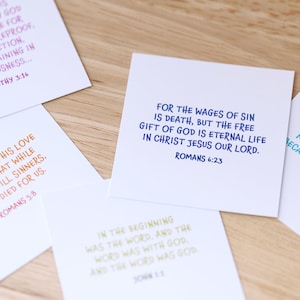 GOD
E FOR
REPROOF,
CTION,
AINING IN
OUSNESS...
THY 3:16
FOR THE WAGES OF SIN
IS DEATH, BUT THE FREE
GIFT OF GOD IS ETERNAL LIFE
IN CHRIST JESUS OUR LORD.
ROMANS 6:23
HIS LOVE
HAT WHILE
ILL SINNERS,
DIED FOR US.
ROMANS 5:8
IN THE BEGINNING
WAS THE WORD, AND THE
WORD WAS WITH GOD,
AND THE WORD WAS GOD.
JOHN 1:1